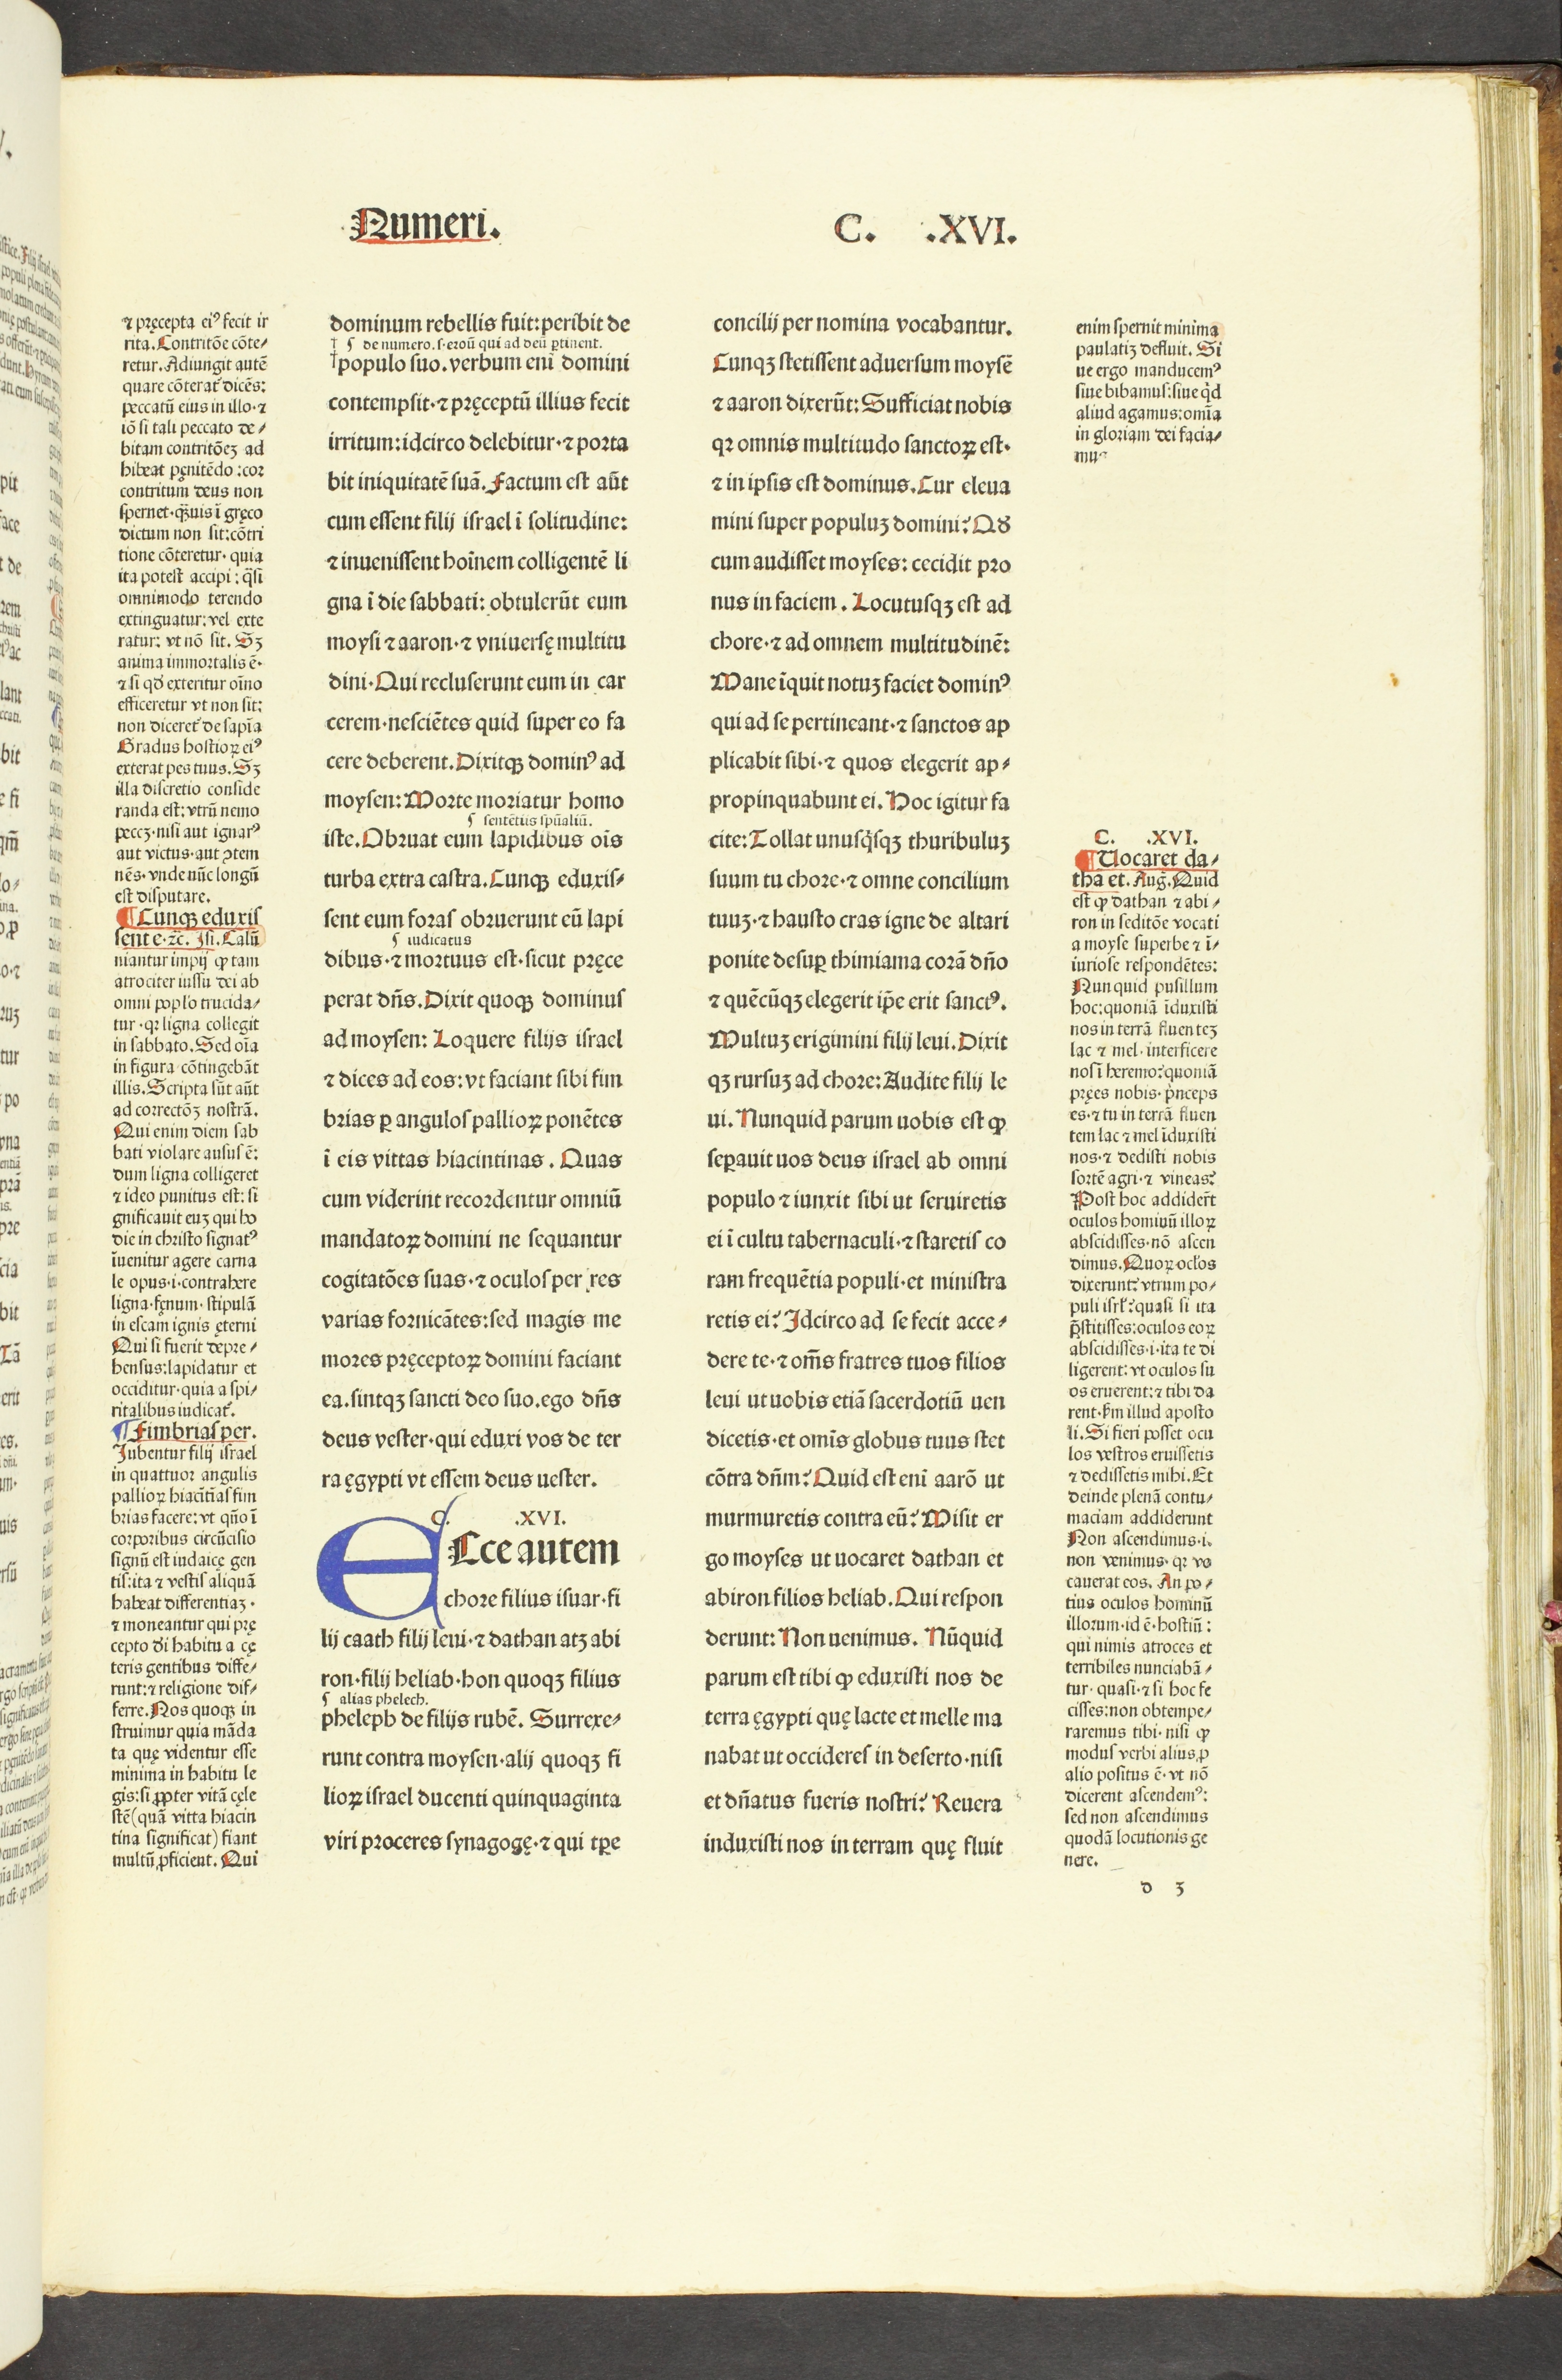 Numeri.
C. .XVI.
⁊ pręcepta ei⁹ fecit ir
rita. Contritōe cōte⸗
retur. Adiungit autē
quare cōterat᷑ dicēs:
peccatū eius in illo·⁊
iō si tali peccato de⸗
bitam contritōeꝫ ad
hibeat pęnitēdo:cor
contritum deus non
spernet·q̄uis ī gręco
dictum non sit:cōtri
tione cōteretur· quia
ita potest accipi: q̄si
omnimodo terendo
extinguatur: vel exte
ratur: vt nō sit. Sꝫ
anima immortalis ē·
⁊ si qđ exteritur oīno
efficeretur vt non sit:
non diceret᷑ de sapīa
Gradus hostioꝝ ei⁹
exterat pes tuus. Sꝫ
illa discretio conside
randa est: vtrū nemo
peccꝫ·nisi aut ignar⁹
aut victus·aut ↄtem
nēs· vnde nūc longū
est disputare.
¶ Cunqꝫ eduxis
sent e·⁊c̄. Isi. Calū
niantur impij ꝙ tam
atrociter iussu dei ab
omni poplo trucida⸗
tur ·qꝛ ligna collegit
in sabbato. Sed oīa
in figura cōtingebāt
illis. Scripta sūt aūt
ad correctōꝫ nostrā.
Qui enim diem sab
bati violare ausus ē:
dum ligna colligeret
⁊ ideo punitus est: si
gnificauit euꝫ qui ho
die in christo signat⁹
īuenitur agere carna
le opus·i·contrahere
ligna·fęnum· stipulā
in escam ignis ęterni
Qui si fuerit depre⸗
hensus:lapidatur et
occiditur· quia a spi⸗
ritalibus iudicat᷑.
¶ Fimbrias per.
Iubentur filij israel
in quattuor angulis
pallioꝝ hiacītīas fim
brias facere: vt qn̄o ī
corporibus circūcisio
signū est iudaicę gen
tis: ita ⁊ vestis aliquā
habeat differentiaꝫ·
⁊ moneantur qui pre
cepto di habitu a cę
teris gentibus diffe⸗
runt: ⁊ religione dif⸗
ferre. Nos quoqꝫ in
struimur quia māda
ta quę videntur esse
minima in habitu le
gis: si ꝓpter vitā cęle
stē (quā vitta hiacin
tina significat) fiant
multū ꝓficient. Qui
dominum rebellis fuit: peribit de
⸿ de numero. s·eroū qui ad deū ꝑtinent.
populo suo. verbum enī domini
contempsit·⁊ pręceptū illius fecit
irritum: idcirco delebitur·⁊ porta
bit iniquitatē suā. Factum est aūt
cum essent filij israel ī solitudine:
⁊ inuenissent hoīnem colligentē li
gna ī die sabbati: obtulerūt eum
moysi ⁊ aaron·⁊ vniuersę multitu
dini· Qui recluserunt eum in car
cerem·nesciētes quid super eo fa
cere deberent. Dixitqꝫ domin⁹ ad
moysen: Morte moriatur homo
⸿ sentētiis spūaliū.
iste. Obruat eum lapidibus oīs
turba extra castra. Cunqꝫ eduxis⸗
sent eum foras obruerunt eū lapi
⸿ iudicatus
dibus·⁊ mortuus est·sicut pręce
perat dn̄s. Dixit quoqꝫ dominus
ad moysen: Loquere filijs israel
⁊ dices ad eos: vt faciant sibi fim
brias ꝑ angulos pallioꝝ ponētes
ī eis vittas hiacintinas. Quas
cum viderint recordentur omniū
mandatoꝝ domini ne sequantur
cogitatōes suas·⁊ oculos per res
varias fornicātes: sed magis me
mores pręceptoꝝ domini faciant
ea. sintqꝫ sancti deo suo. ego dn̄s
deus vester·qui eduxi vos de ter
ra ęgypti vt essem deus uester.
C. .XVI.
ECce autem
chore filius isuar·fi
lij caath filij leui·⁊ dathan atqꝫ abi
ron·filij heliab·hon quoqꝫ filius
⸿ alias phelech.
pheleph de filijs rubē. Surrexe⸗
runt contra moysen·alij quoqꝫ fi
lioꝝ israel ducenti quinquaginta
viri proceres synagogę·⁊ qui tꝑe
concilij per nomina vocabantur.
Cunqꝫ stetissent aduersum moysē
⁊ aaron dixerūt: Sufficiat nobis
qꝛ omnis multitudo sanctoꝝ est·
⁊ in ipsis est dominus. Cur eleua
mini super populuꝫ domini? Qđ
cum audisset moyses: cecidit pro
nus in faciem. Locutusqꝫ est ad
chore·⁊ ad omnem multitudinē:
Mane īquit notuꝫ faciet domin⁹
qui ad se pertineant·⁊ sanctos ap
plicabit sibi·⁊ quos elegerit ap⸗
propinquabunt ei. Hoc igitur fa
cite: Tollat unusq̇sqꝫ thuribuluꝫ
suum tu chore·⁊ omne concilium
tuuꝫ·⁊ hausto cras igne de altari
ponite desuꝑ thimiama corā dn̄o
⁊ quēcūqꝫ elegerit ip̄e erit sanct⁹.
Multuꝫ erigimini filij leui. Dixit
qꝫ rursuꝫ ad chore: Audite filij le
ui. Nunquid parum uobis est ꝙ
seꝑauit uos deus israel ab omni
populo ⁊ iunxit sibi ut seruiretis
ei ī cultu tabernaculi·⁊ staretis co
ram frequētia populi·et ministra
retis ei? Idcirco ad se fecit acce⸗
dere te·⁊ om̄s fratres tuos filios
leui ut uobis etiā sacerdotiū uen
dicetis·et omīs globus tuus stet
cōtra dn̄m? Quid est enī aarō ut
murmuretis contra eū? Misit er
go moyses ut uocaret dathan et
abiron filios heliab. Qui respon
derunt: Non uenimus. Nūquid
parum est tibi ꝙ eduxisti nos de
terra ęgypti quę lacte et melle ma
nabat ut occideres in deserto·nisi
et dn̄atus fueris nostri? Reuera
induxisti nos in terram quę fluit
enim spernit minima
paulatiꝫ defluit. Si
ue ergo manducem⁹
siue bibamus: siue q̇d
aliud agamus: omīa
in gloriam dei facia⸗
mus
C. .XVI.
¶ Uocaret da⸗
tha et. Auḡ. Quid
est ꝙ dathan ⁊ abi⸗
ron in seditōe vocati
a moyse superbe ⁊ ī⸗
iuriose respondētes:
Nunquid pusillum
hoc: quoniā īduxisti
nos in terrā fluenteꝫ
lac ⁊ mel· interficere
nos ī heremo? quoniā
pręes nobis· p̍nceps
es·⁊ tu in terrā fluen
tem lac ⁊ mel īduxisti
nos·⁊ dedisti nobis
sortē agri·⁊ vineas?
Post hoc addider̄t
oculos hominū illoꝝ
abscidisses·nō ascen
dimus. Quoꝝ oc̄los
dixerunt? vtrum po⸗
puli isrl̓? quasi si ita
p̄stitisses: oculos eoꝝ
abscidisses·i·ita te di
ligerent: vt oculos su
os eruerent: ⁊ tibi da
rent·ẜm illud aposto
li. Si fieri posset ocu
los vestros eruissetis
⁊ dedissetis mihi. Et
deinde plenā contu⸗
maciam addiderunt
Non ascendimus·i·
non venimus· qꝛ vo
cauerat eos. An po⸗
tius oculos hominū
illorum·id ē·hostiū:
qui nimis atroces et
terribiles nunciabā⸗
tur· quasi·⁊ si hoc fe
cisses: non obtempe⸗
raremus tibi· nisi ꝙ
modus verbi alius ꝓ
alio positus ē· vt nō
dicerent ascendem⁹:
sed non ascendimus
quodā locutionis ge
nere.
d 3